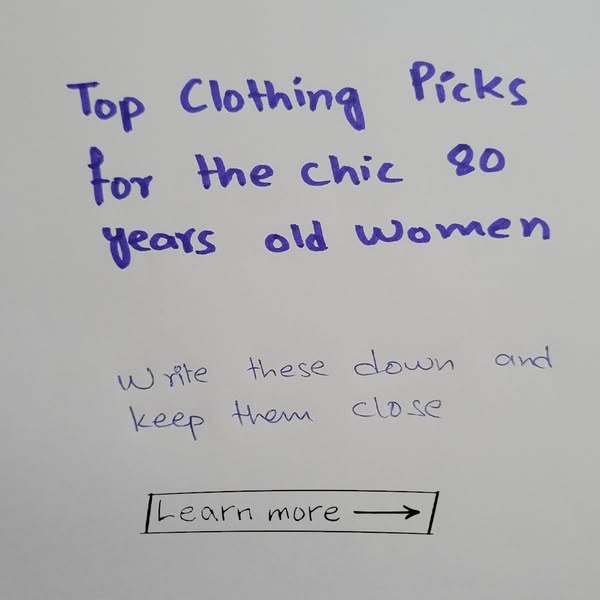 Top Clothing Picks
for the chic 80
years old women
Write these down and
keep them close
Learn more →